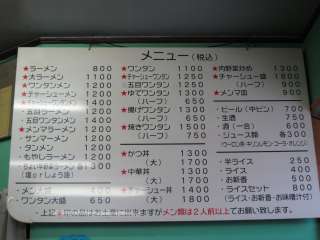 メニュー(税込)
★ラーメン 800
★大ラーメン 1100
★ワンタンメン 1200
★チャーシューメン 1200
★ワンタンチャーシューメン 1400
五目ラーメン 1200
★メンマラーメン 1100
サンマーメン
タンメン
もやしラーメン
(塩orしょう油)
ワンタン大盛 650
★ワンタン 1100
★チャーシューワンタン 1300
五目ワンタン 1200
★ゆでワンタン 1200
(ハーフ) 650
★揚げワンタン 1300
(ハーフ) 650
★焼きワンタン 1500
(ハーフ) 750
★かつ丼 1300
(大) 1700
★中華丼 1300
(大) 1700
★チャーシュー丼 1400
(大) 1800
★肉野菜炒め 1300
★チャーシュー皿 1800
(ハーフ) 1000
★メンマ皿 900
・ビール(中ビン) 700
・生酒 750
・酒(一合) 600
・ジュース類 各300
(ウーロン茶・キリンレモン・コーラ・オレンジ)
・半ライス 250
・ライス 400
・お新香 500
・ライスセット 800
(半ライス・お新香・お味噌汁付)
上記★印の品はお土産に出来ますがメン類は2人前以上でお願い致します。